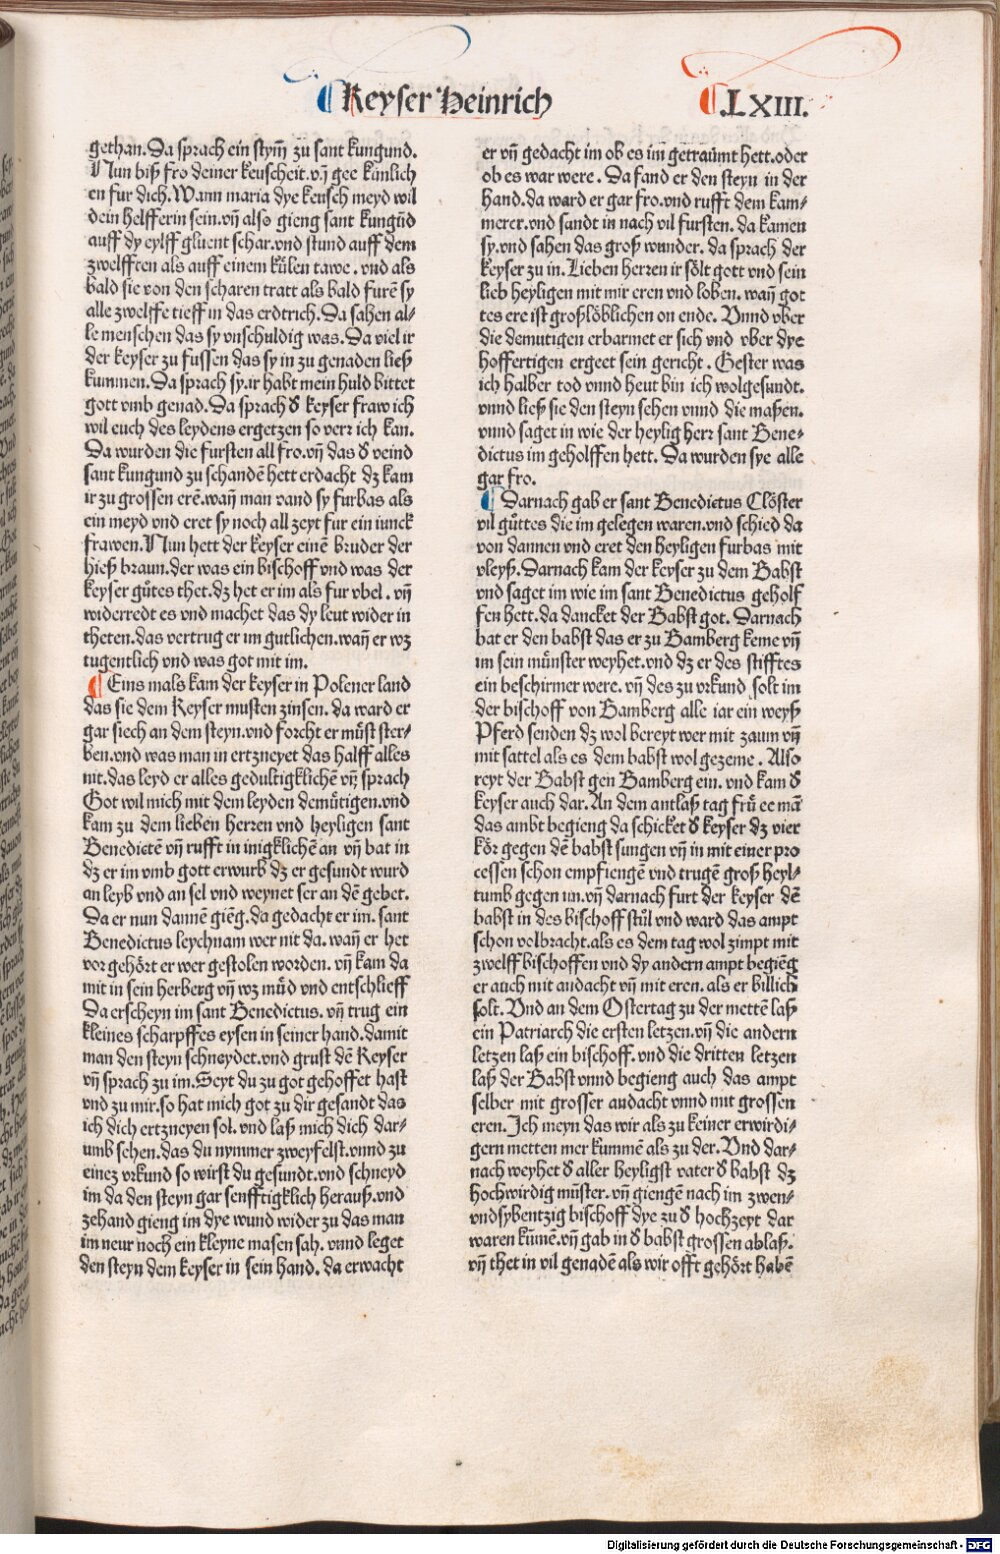 Keyser Heinrich
.LXIII.
gethan. Da sprach ein stym̄ zu sant kungund.
Nun biß fro deiner keuscheit. vn̄ gee künlich
en fur dich. Wann maria dye keusch meyd wil
dein helfferin sein. vn̄ also gieng sant kungūd
auff dy eylff gluent schar. vnd stund auff dem
zwelfften als auff einem külen tawe. vnd als
bald sie von den scharen tratt als bald furē sy
alle zwelffe tieff in das erdtrich. Da sahen al-
le menschen das sy vnschuldig was. Da viel ir
der keyser zu fussen das sy in zu genaden ließ
kummen. Da sprach sy. ir habt mein huld bittet
gott vmb genad. Da sprach d̕ keyser fraw ich
wil euch des leydens ergetzen so verr ich kan.
Da wurden die fursten all fro. vn̄ das d̕ veind
sant kungund zu schandē hett erdacht dz kam
ir zu grossen erē. wan̄ man vand sy furbas als
ein meyd vnd eret sy noch all zeyt fur ein iunck
frawen. Nun hett der keyser einē bruder der
hieß braun. der was ein bischoff vnd was der
keyser gůtes thet. dz het er im als fur vbel. vn̄
widerredt es vnd machet das dy leut wider in
theten. das vertrug er im gutlichen. wan̄ er wz
tugentlich vnd was got mit im.
Eins mals kam der keyser in Polener land
das sie dem Keyser musten zinsen. da ward er
gar siech an dem steyn. vnd forcht er můst ster-
ben. vnd was man in ertzneyet das halff alles
nit. das leyd er alles gedultigklichē vn̄ sprach
Got wil mich mit dem leyden demütigen. vnd
kam zu dem lieben herren vnd heyligen sant
Benedictē vn̄ rufft in inigklichē an vn̄ bat in
dz er im vmb gott erwurb dz er gesundt wurd
an leyb vnd an sel vnd weynet ser an dē gebet.
Da er nun dannē giēg. da gedacht er im. sant
Benedictus leychnam wer nit da. wan̄ er het
vor gehört er wer gestolen worden. vn̄ kam da
mit in sein herberg vn̄ wz můd vnd entschlieff
Da erscheyn im sant Benedictus. vn̄ trug ein
kleines scharpffes eysen in seiner hand. damit
man den steyn schneydet. vnd grust dē Keyser
vn̄ sprach zu im. Seyt du zu got gehoffet hast
vnd zu mir. so hat mich got zu dir gesandt das
ich dich ertzneyen sol. vnd laß mich dich dar-
umb sehen. das du nymmer zweyfelst. vnnd zu
einez vrkund so wirst du gesundt. vnd schneyd
im da den steyn gar senfftigklich herauß. vnd
zehand gieng im dye wund wider zu das man
im neur noch ein kleyne masen sah. vnnd leget
den steyn dem keyser in sein hand. da erwacht
er vn̄ gedacht im ob es im̄ getraümt hett. oder
ob es war were. Da fand er den steyn in der
hand. da ward er gar fro. vnd rufft dem kam-
merer. vnd sandt in nach vil fursten. da kamen
sy. vnd sahen das groß wunder. da sprach der
keyser zu in. Lieben herzen ir sölt gott vnd sein
lieb heyligen mit mir eren vnd loben. wan̄ got
tes ere ist großlöblichen on ende. Vnnd vber
die demutigen erbarmet er sich vnd vber dye
hoffertigen ergeet sein gericht. Gester was
ich halber tod vnnd heut bin ich wolgesundt.
vnnd ließ sie den steyn sehen vnnd die maßen.
vnnd saget in wie der heylig herr sant Bene-
dictus im geholffen hett. Da wurden sye alle
gar fro.
Darnach gab er sant Benedictus Clöster
vil gůttes die im gelegen waren. vnd schied da
von dannen vnd eret den heyligen furbas mit
vleyß. Darnach kam der keyser zu dem Babst
vnd saget im wie im sant Benedictus geholf
fen hett. da dancket der Babst got. Darnach
bat er den babst das er zu Bamberg keme vn̄
im sein münster weyhet. vnd dz er des stifftes
ein beschirmer were. vn̄ des zu vrkund solt im
der bischoff von Bamberg alle iar ein weyß
Pferd senden dz wol bereyt wer mit zaum vn̄
mit sattel als es dem babst wol gezeme. Also
reyt der Babst gen Bamberg ein. vnd kam d̕
keyser auch dar. An dem antlaß tag frů ee mā
das ambt begieng da schicket d̕ keyser dz vier
kör gegen dē babst sungen vn̄ in mit einer pro
cessen schon empfiengē vnd trugē groß heyl-
tumb gegen im. vn̄ darnach furt der keyser dē
babst in des bischoff stůl vnd ward das ampt
schon volbracht. als es dem tag wol zimpt mit
zwelff bischoffen vnd dy andern ampt begiēg
er auch mit andacht vn̄ mit eren. als er billich
solt. Vnd an dem Ostertag zu der mettē laß
ein Patriarch die ersten letzen. vn̄ die andern
letzen laß ein bischoff. vnd die dritten letzen
laß der Babst vnnd begieng auch das ampt
selber mit grosser andacht vnnd mit grossen
eren. Ich meyn das wir als zu keiner erwirdi-
gern metten mer kummē als zu der. Vnd dar-
nach weyhet d̕ aller heyligst vater d̕ babst dz
hochwirdig müster. vn̄ giengē nach im zwen-
vndsybentzig bischoff dye zu d̕ hochzeyt dar
waren kūmē. vn̄ gab in d̕ babst grossen ablaß.
vn̄ thet in vil genadē als wir offt gehört habē
Digitalisierung gefördert durch die Deutsche Forschungsgemeinschaft - DFG